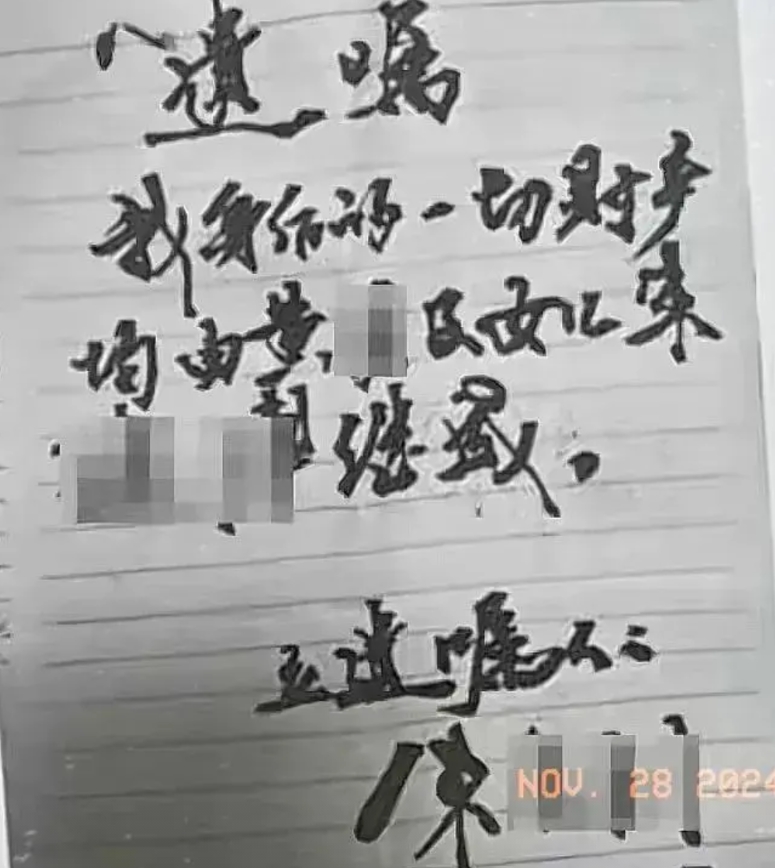 遗嘱
我身后的一切财产
均由黄 及女儿
继承。
立遗嘱人:
陈
NOV. 28 2024